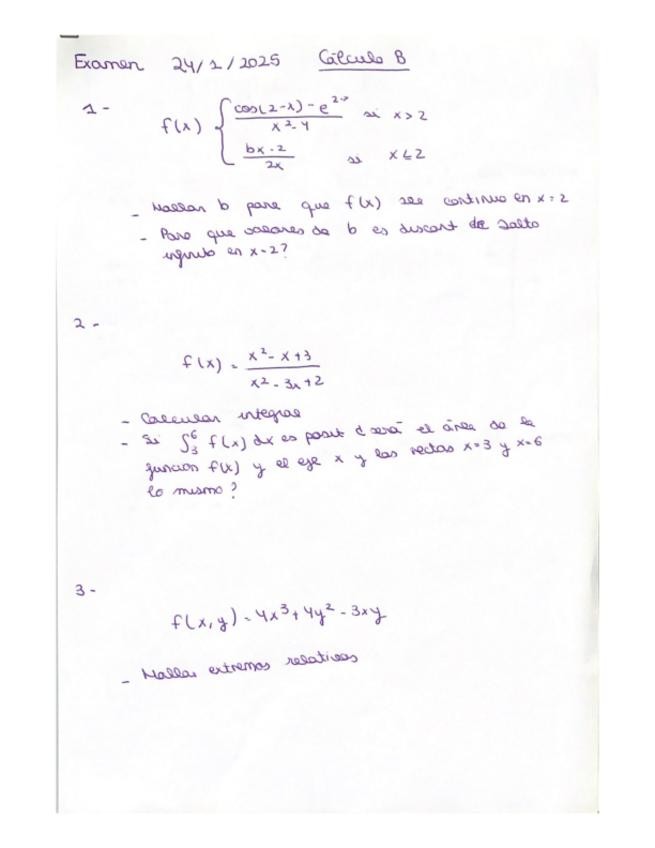 Examen 24/1/2025 Cálculo B
1-
f(x) { cos(2-x) - e^2-x / x^2-4 si x>2
bx-2 / 2x si x≤2
- Hallar b para que f(x) sea continua en x=2
- Para que valores de b es discont de salto
infinito en x=2?
2-
f(x) = x^2-x+3 / x^2-3x+2
- Calcular integral
- Si ∫_3^6 f(x) dx es posit ¿será el área de la
funcion f(x) y el eje x y las rectas x=3 y x=6
lo mismo?
3-
f(x,y) = 4x^3+4y^2-3xy
- Hallar extremos relativos